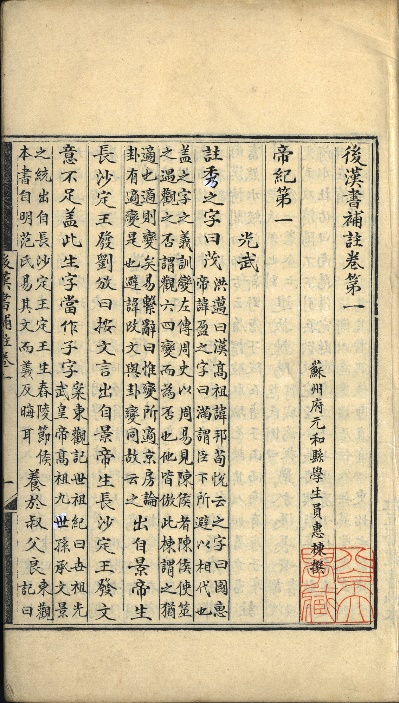 後漢書補註卷第一
蘇州府元和縣學生員惠棟撰
帝紀第一
光武
註秀之字曰茂
洪邁曰漢高祖諱邦荀悅云之字曰國惠
帝諱盈之字曰滿謂臣下所避以相代也
盖之字之義訓變左傳周史以周易見陳侯者陳侯使筮
之遇觀之否謂觀六四變而為否也他皆倣此棟謂之猶
適也適則變矣易繫辭曰惟變所適京房論
卦有適變是也避諱改文與卦變同故云之
出自景帝生
長沙定王發劉攽曰按文言出自景帝生長沙定王發文
意不足盖此生字當作子字
案東觀記世祖紀曰世祖光
武皇帝高祖九世孫承文景
之統出自長沙定王定王生舂陵節侯
本書自明范氏易其文而義反晦耳
養於叔父良
東觀
記曰
後漢書補註卷一
一